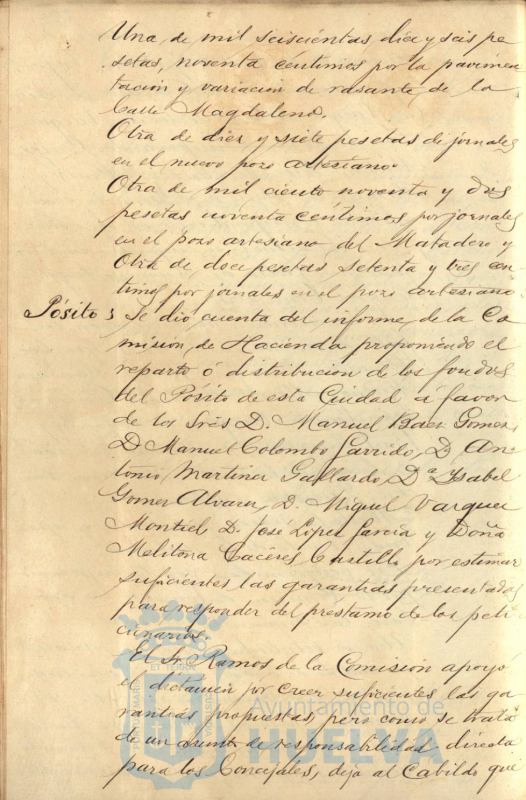 Una de mil seiscientas diez y seis pe
setas, noventa céntimos por la pavimen
tación y variación de rasante de la
Calle Magdalena.
Otra de diez y siete pesetas de jornales
en el nuevo pozo artesiano.
Otra de mil ciento noventa y dos
pesetas noventa céntimos por jornales
en el pozo artesiano del Matadero y
Otra de doce pesetas setenta y tres cen
timos por jornales en el pozo artesiano.
Pósitos Se dió cuenta del informe de la Co
misión de Hacienda proponiendo el
reparto ó distribucion de los fondos
del Pósito de esta Ciudad á favor
de los Srés D. Manuel Baez Gomez,
D Manuel Colombo Garrido, D. An
tonio Martinez Gallardo, Dª Ysabel
Gomez Alvarez, D. Miguel Vazquez
Montiel, D. José Lopez Garcia y Doña
Melitona Cacéres Castillo por estimar
suficientes las garantias presentadas
para responder del prestamo de los peti
cionarios.
El Sr. Ramos de la Comisión apoyó
el dictamen por creer suficientes las ga
rantias propuestas, pero como se trata
de un asunto de responsabilidad directa
para los Concejales, deja al Cabildo que
Ayuntamiento de
HUELVA